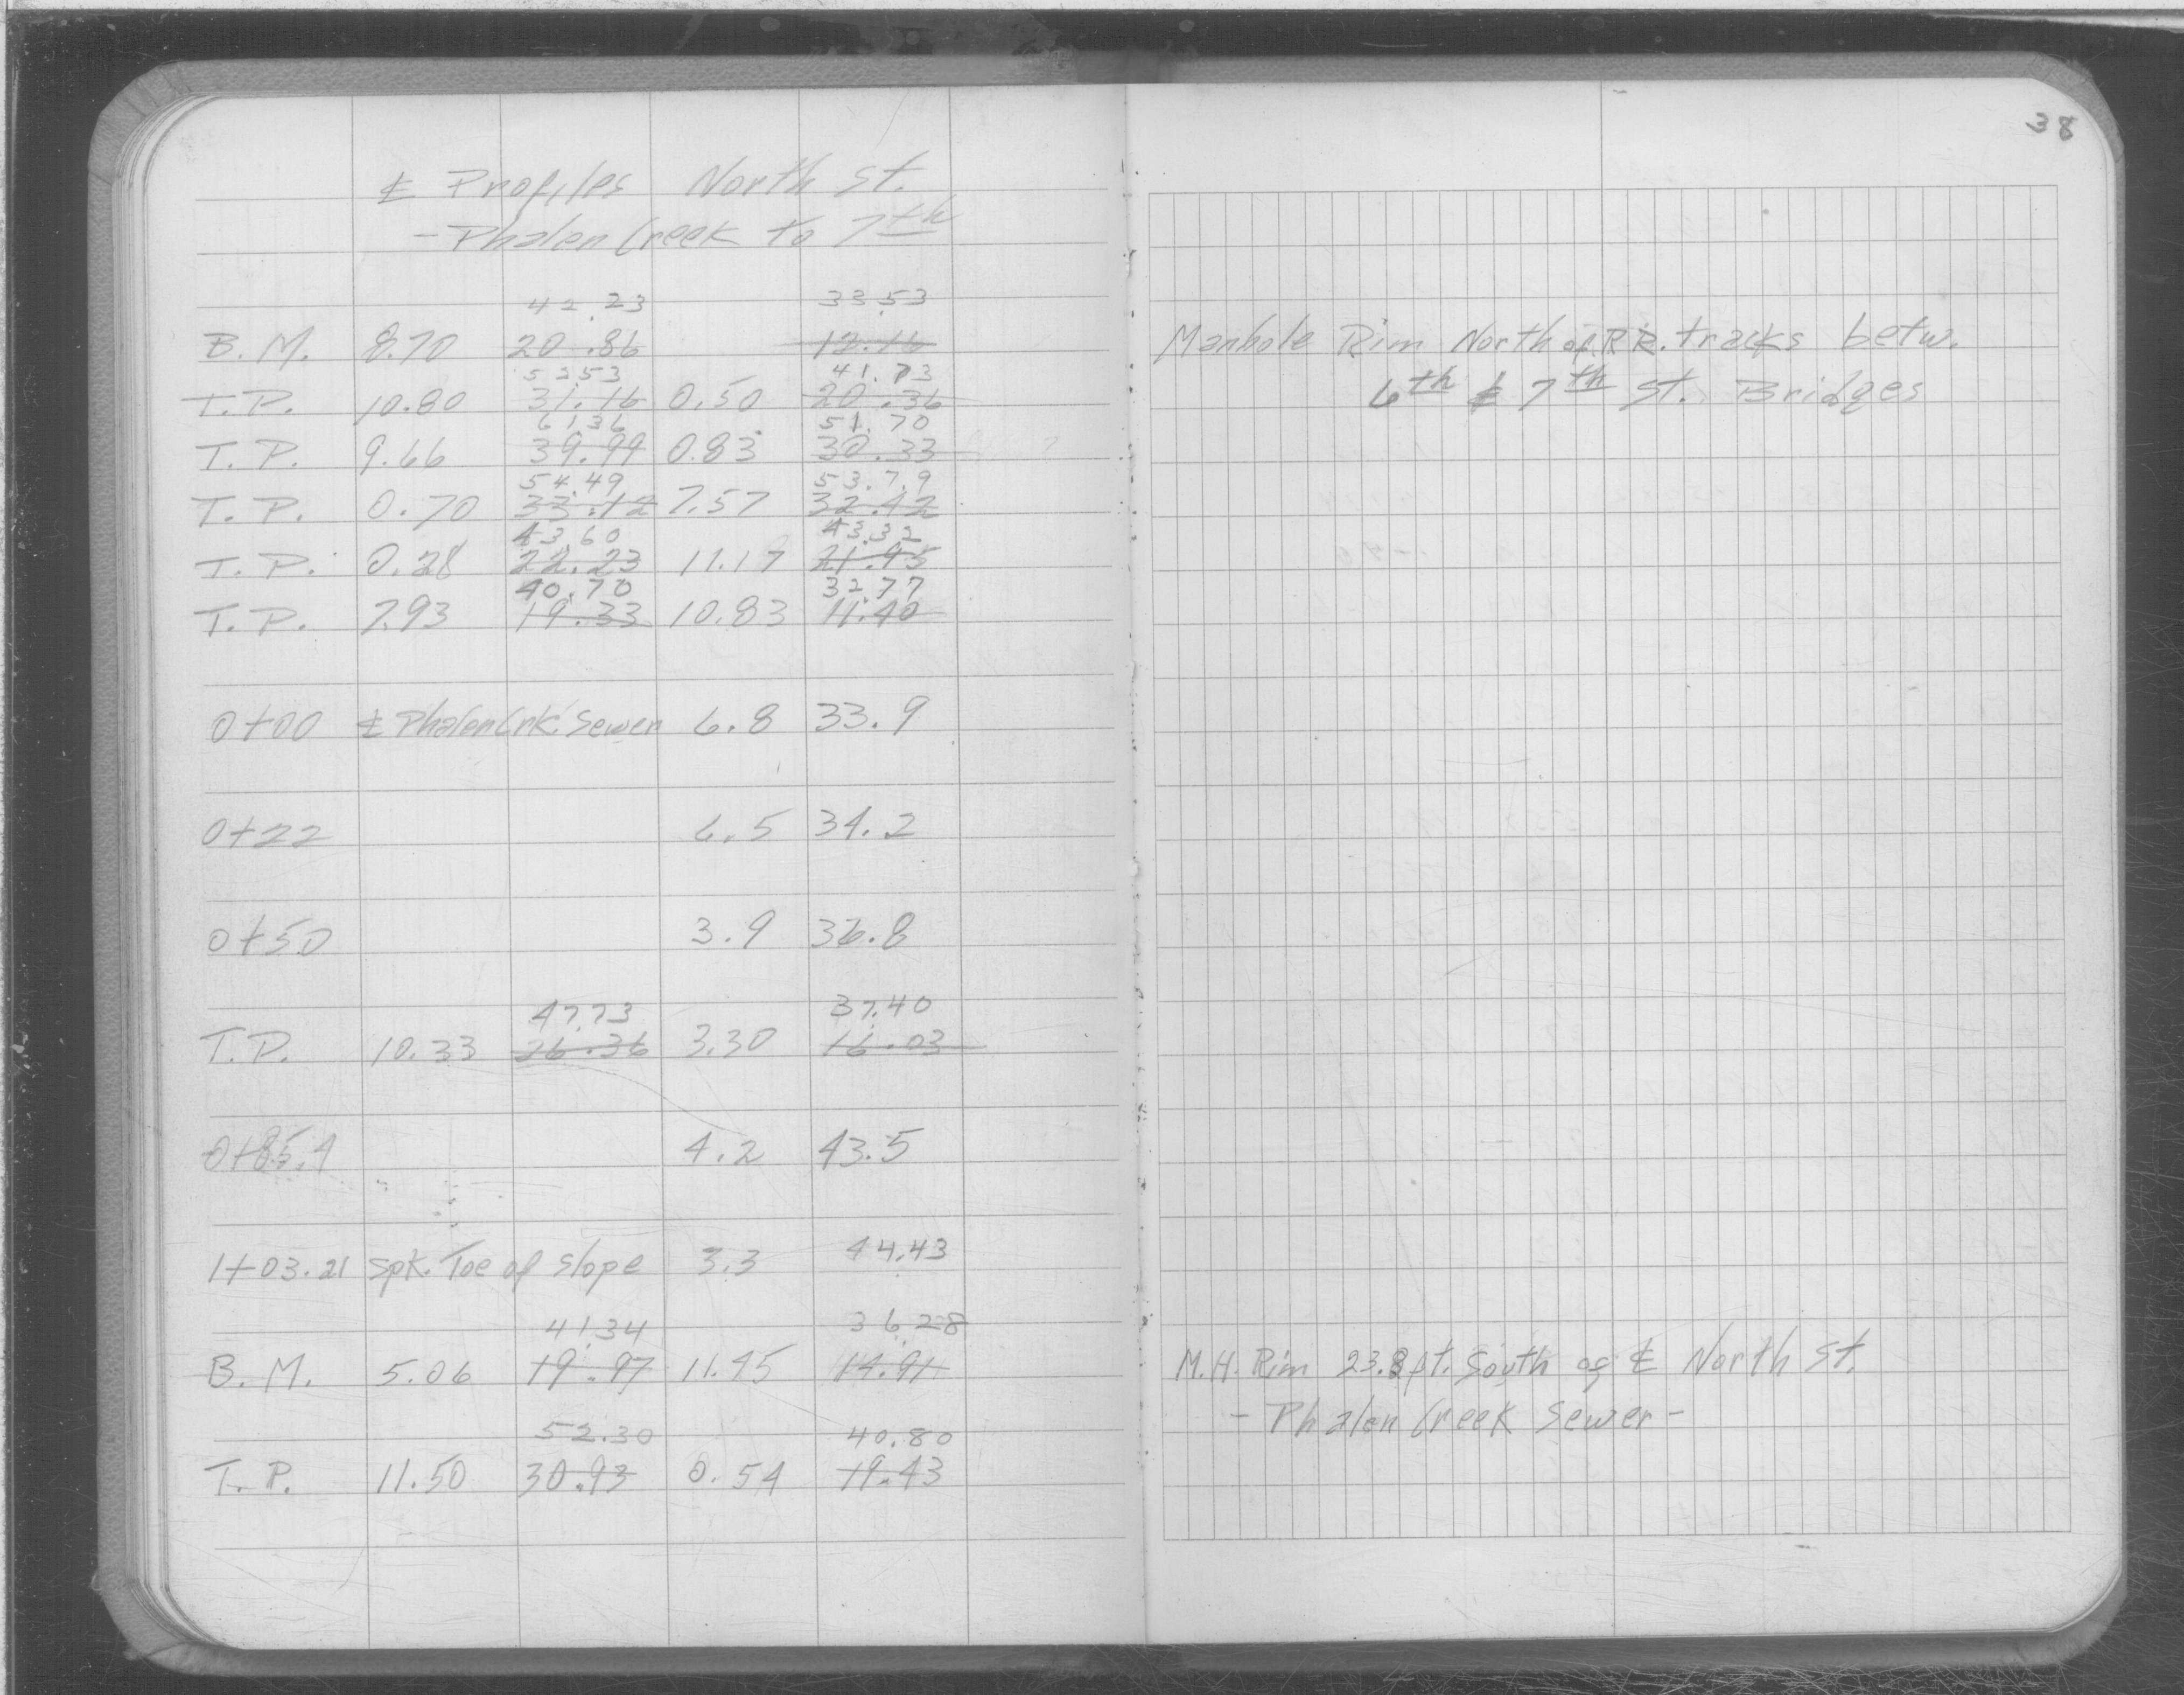 38
℄ Profiles North St.
- Phalen Creek to 7th
42.23 33.53
B.M. 8.70 20.86 12.16
52.53 41.73
T.P. 10.80 31.16 0.50 20.36
61.36 51.70
T.P. 9.66 39.99 0.83 30.33
54.49 53.79
T.P. 0.70 33.12 7.57 32.42
43.60 43.32
T.P. 0.28 22.23 11.17 21.95
40.70 32.77
T.P. 7.93 19.33 10.83 11.40
0+00 ℄ Phalen Crk. Sewer 6.8 33.9
0+22 6.5 34.2
0+50 3.9 36.8
47.73 37.40
T.P. 10.33 26.36 3.30 16.03
0+85.4 4.2 43.5
1+03.21 Spk. Toe of Slope 3.3 44.43
41.34 36.28
B.M. 5.06 19.97 11.45 14.91
52.30 40.80
T.P. 11.50 30.93 0.54 19.43
Manhole Rim North of R.R. tracks betw.
6th & 7th St. Bridges
M.H. Rim 23.8 ft. South of ℄ North St.
- Phalen Creek Sewer -